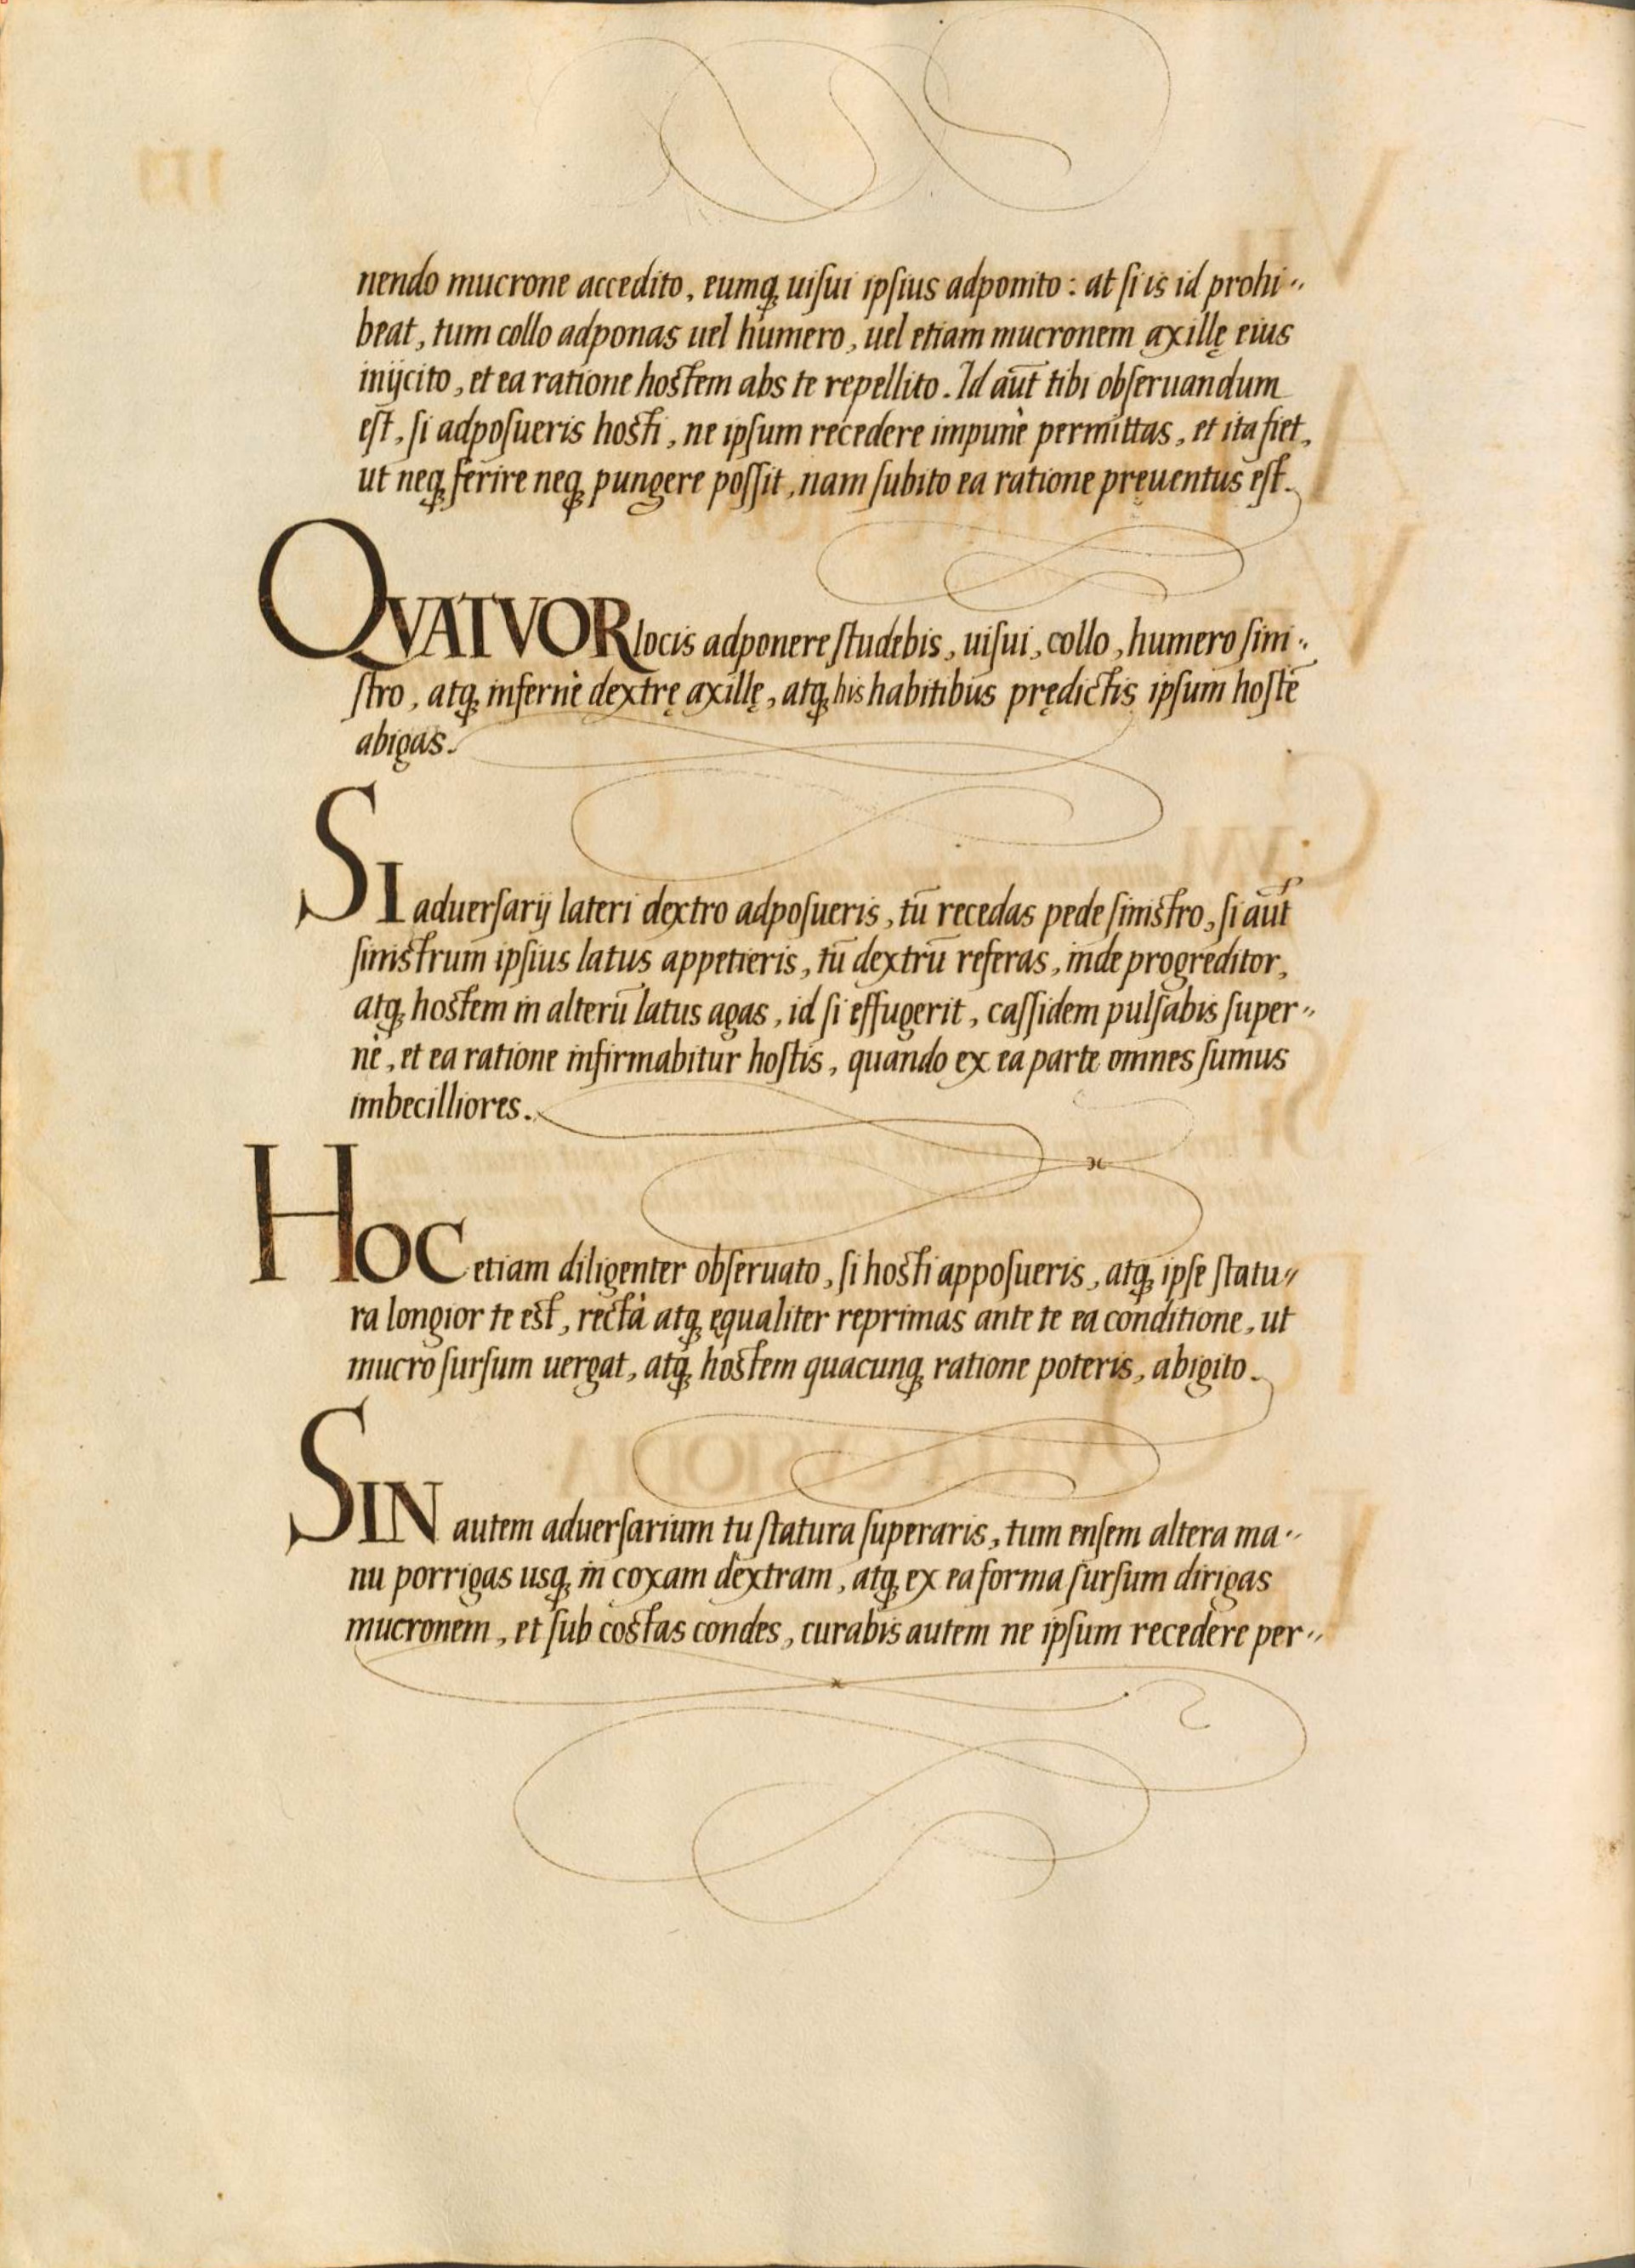 nendo mucrone accedito, eumq́; uiſui ipſius adponito: at ſi is id prohi-
beat, tum collo adponas uel humero, uel etiam mucronem axillę eius
inijcito, et ea ratione hoſtem abs te repellito. Id aūt tibi obſeruandum
eſt, ſi adpoſueris hoſti, ne ipſum recedere impunè permittas, et ita fiet,
ut neq; ferire neq; pungere poſſit, nam ſubito ea ratione pręuentus eſt.
QVATVOR locis adponere ſtudebis, uiſui, collo, humero ſini-
ſtro, atq; infernè dextrę axillę, atq; his habitibus prędictis ipſum hoſtē
abigas.
SI aduerſarij lateri dextro adpoſueris, tū recedas pede ſiniſtro, ſi aūt
ſiniſtrum ipſius latus appetieris, tū dextrū referas, inde progreditor,
atq; hoſtem in alterū latus agas, id ſi effugerit, caſſidem pulſabis ſuper-
nè, et ea ratione infirmabitur hoſtis, quando ex ea parte omnes ſumus
imbecilliores.
HOC etiam diligenter obſeruato, ſi hoſti appoſueris, atq; ipſe ſtatu-
ra longior te eſt, rectà atq; ęqualiter reprimas ante te ea conditione, ut
mucro ſurſum uergat, atq́; hoſtem quacunq; ratione poteris, abigito.
SIN autem aduerſarium tu ſtatura ſuperaris, tum enſem altera ma-
nu porrigas usq; in coxam dextram, atq; ex ea forma ſurſum dirigas
mucronem, et ſub coſtas condes, curabis autem ne ipſum recedere per-